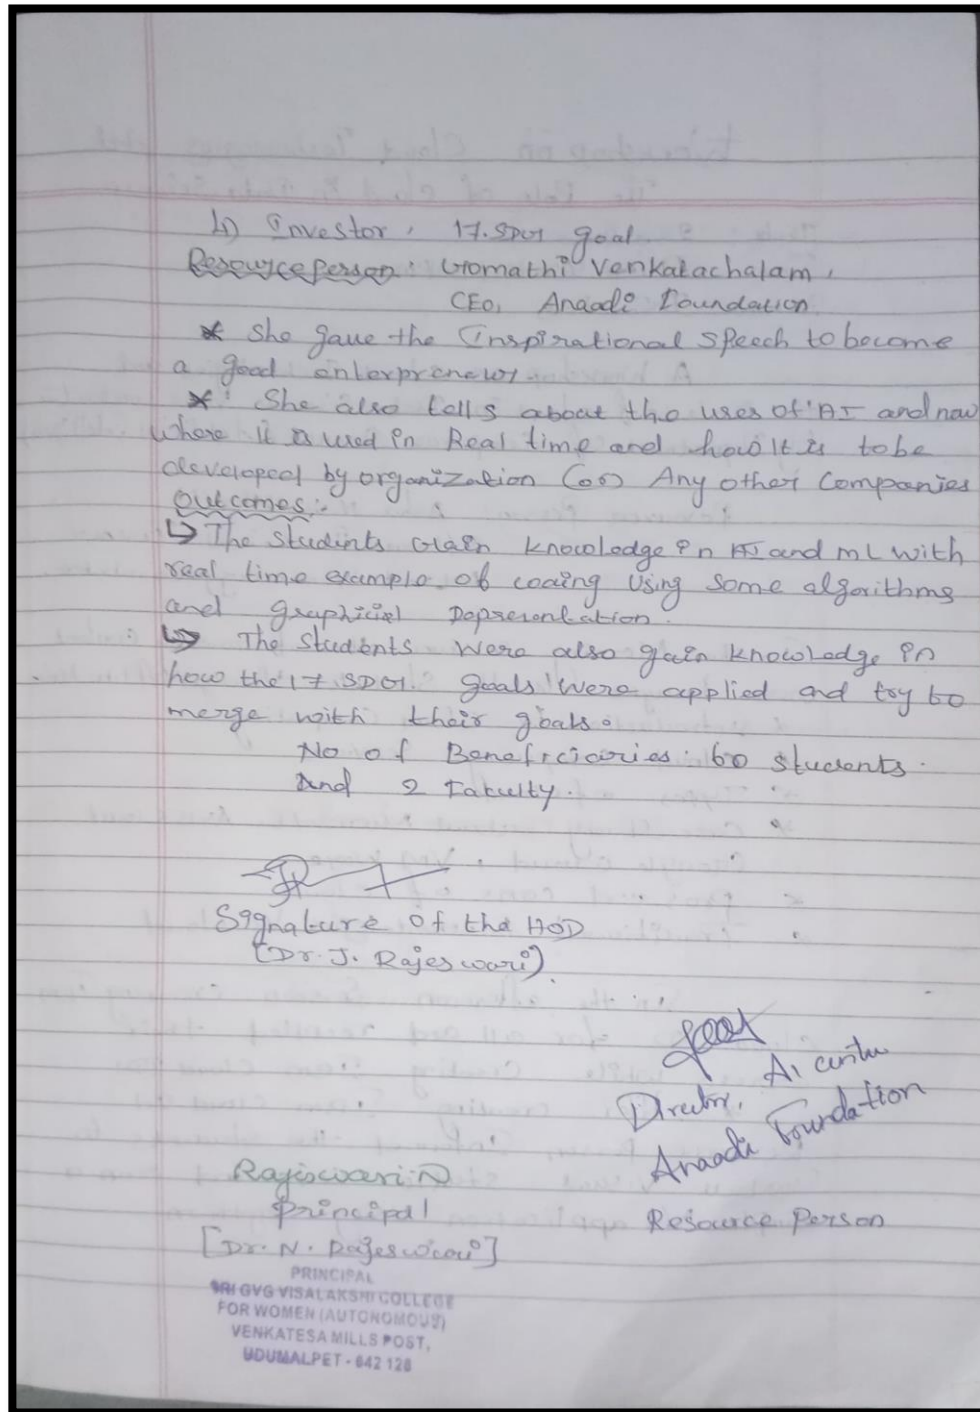 4) Investor, 17.SDG goal.
Resource person: Gomathi Venkatachalam,
CEO, Anaadi Foundation
* She gave the Inspirational Speech to become
a good enterprenewr.
*: She also tells about the uses of 'AI and now
where it is used in Real time and how it is to be
developed by organization (or) Any other Companies
Outcomes:-
↳ The students Gain knowledge in AI and ML with
real time example of coding Using Some algorithms
and graphicial Representation.
↳ The Students Were also gain knowledge in
how the 17 SDG. goals were applied and try to
merge with their goals.
No of Beneficiaries: 60 students.
And 2 Faculty.
Signature of the HOD
(Dr. J. Rajeswari)
Director, AI centre
Anaadi Foundation
Rajeswari.N
Principal
Resource Person
[Dr. N. Rajeswari]
PRINCIPAL
SRI GVG VISALAKSHI COLLEGE
FOR WOMEN (AUTONOMOUS)
VENKATESA MILLS POST,
UDUMALPET - 642 128